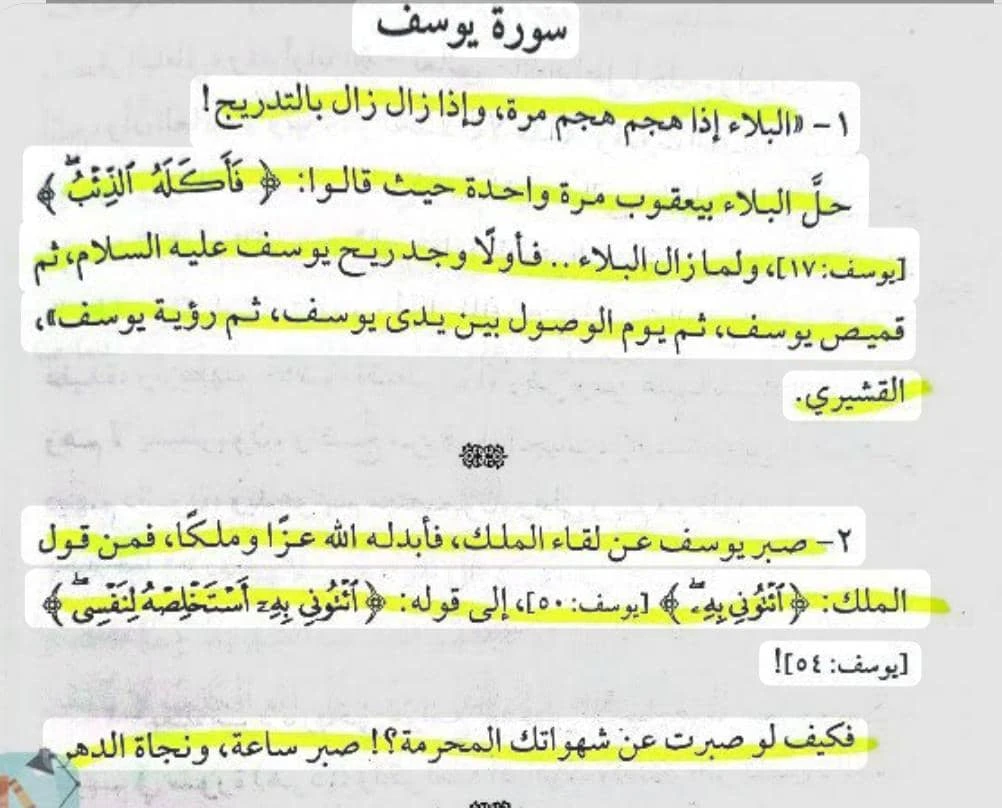 سورة يوسف
١- «البلاء إذا هجم هجم مرة، وإذا زال زال بالتدريج!
حلَّ البلاء بيعقوب مرة واحدة حيث قالوا: ﴿فَأَكَلَهُ ٱلذِّئْبُ ۖ﴾
[يوسف: ١٧]، ولما زال البلاء .. فأولًا وجد ريح يوسف عليه السلام، ثم
قميص يوسف، ثم يوم الوصول بين يدى يوسف، ثم رؤية يوسف»،
القشيري.
٢- صبر يوسف عن لقاء الملك، فأبدله الله عزًا وملكًا، فمن قول
الملك: ﴿ٱئْتُونِي بِهِۦ ۖ﴾ [يوسف: ٥٠]، إلى قوله: ﴿ٱئْتُونِي بِهِۦٓ أَسْتَخْلِصْهُ لِنَفْسِى ۖ﴾
[يوسف: ٥٤]!
فكيف لو صبرت عن شهواتك المحرمة؟! صبر ساعة، ونجاة الدهر